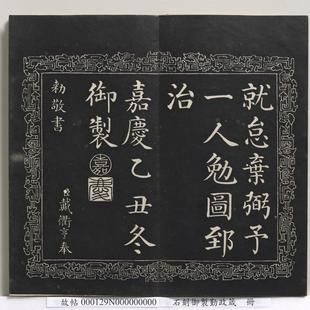 就怠棄弼予
一人勉圖郅
治
嘉慶乙丑冬
御製
嘉
慶
臣戴衢亨奉
勅敬書
故帖 000129N000000000 石刻御製勤政箴 冊